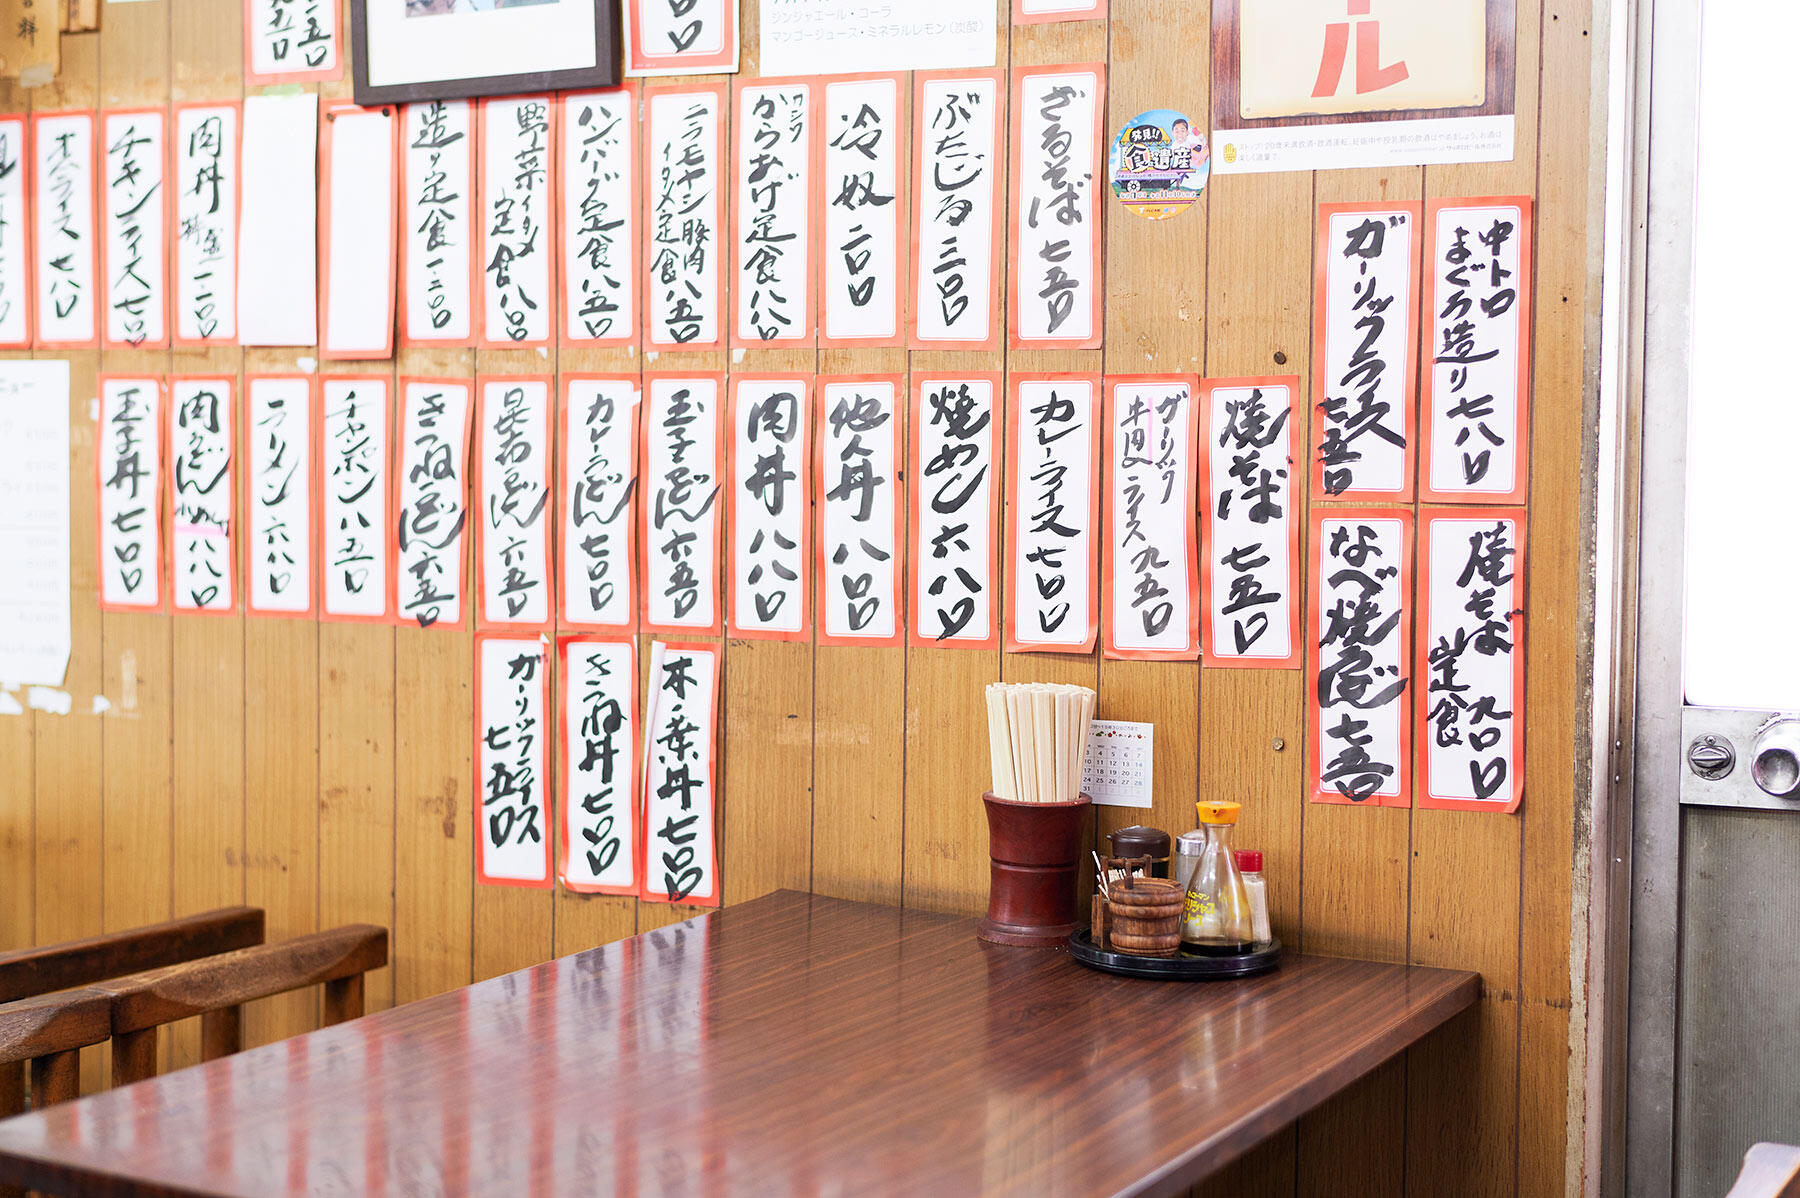 ジンジャエール・コーラ
マンゴージュース・ミネラルレモン(炭酸)
ール
ストップ!20歳未満飲酒・飲酒運転。妊娠中や授乳期の飲酒はやめましょう。お酒は
楽しく適量で。
発見!!
食遺産
ざるそば 七五〇
ぶたじる 三〇〇
冷奴 二〇〇
からあげ定食 八八〇
ニラモヤシ豚肉
イタメ定食 八五〇
ハンバーグ定食 八五〇
野菜イタメ
定食 八〇〇
造り定食 一、二〇〇
肉丼 特盛 一、一〇〇
チキンライス 七〇〇
オムライス 七八〇
中トロ
まぐろ造り 七八〇
ガーリックライス
七五〇
焼そば 七五〇
ガーリック
牛肉入ライス 九五〇
カレーライス 七〇〇
焼めし 六八〇
他人丼 八〇〇
肉丼 八八〇
玉子うどん 六五〇
カレーうどん 七〇〇
昆布うどん 六五〇
きつねうどん 六五〇
チャンポン 八五〇
ラーメン 六八〇
肉うどん 八八〇
玉子丼 七〇〇
焼そば
定食 九〇〇
なべ焼うどん 七五〇
木の葉丼 七〇〇
きつね丼 七〇〇
ガーリックライス
七五〇